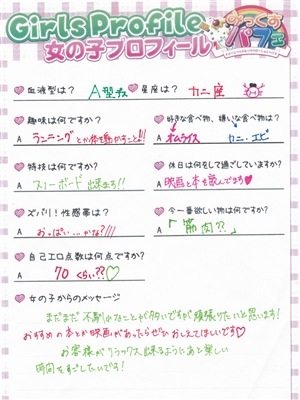 Girls Profile
女の子プロフィール
みっくすパフェ
血液型は？
A A型だよ
星座は？
A カニ座
趣味は何ですか？
A ランニングとか体を動かすこと!!!
好きな食べ物、嫌いな食べ物は？
A オムライス カニ・エビ
特技は何ですか？
A スノーボード出来ます!!
休日は何をして過ごしていますか？
A 映画と本を読んでます♡
ズバリ！性感帯は？
A おっぱい…かな?///
今一番欲しい物は何ですか？
A 「筋肉??」
自己エロ点数は何点ですか？
A 70くらい??♡
女の子からのメッセージ
まだまだ不慣れなことが多いですが頑張りたいと思います!
おすすめの本とか映画があったらぜひおしえてほしいです♡
お客様がリラックス出来るようにあと楽しい
時間をすごしたいです!